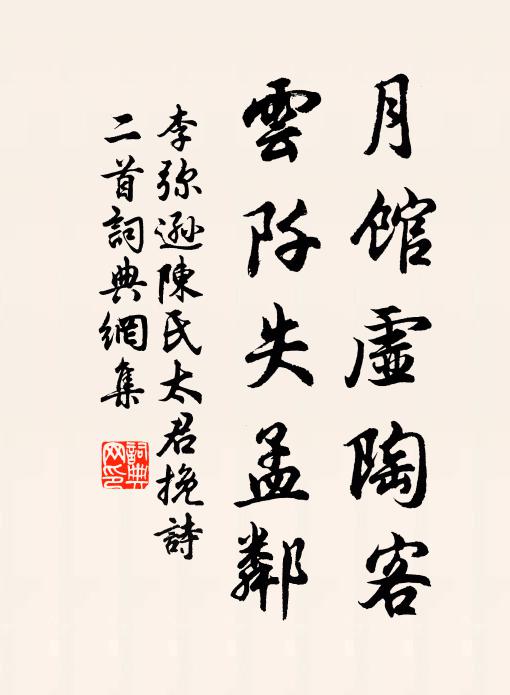 月館虛陶客
雲阡失孟鄰
李弥遜陳氏太君挽詩
二首詞典網集
詞典网印